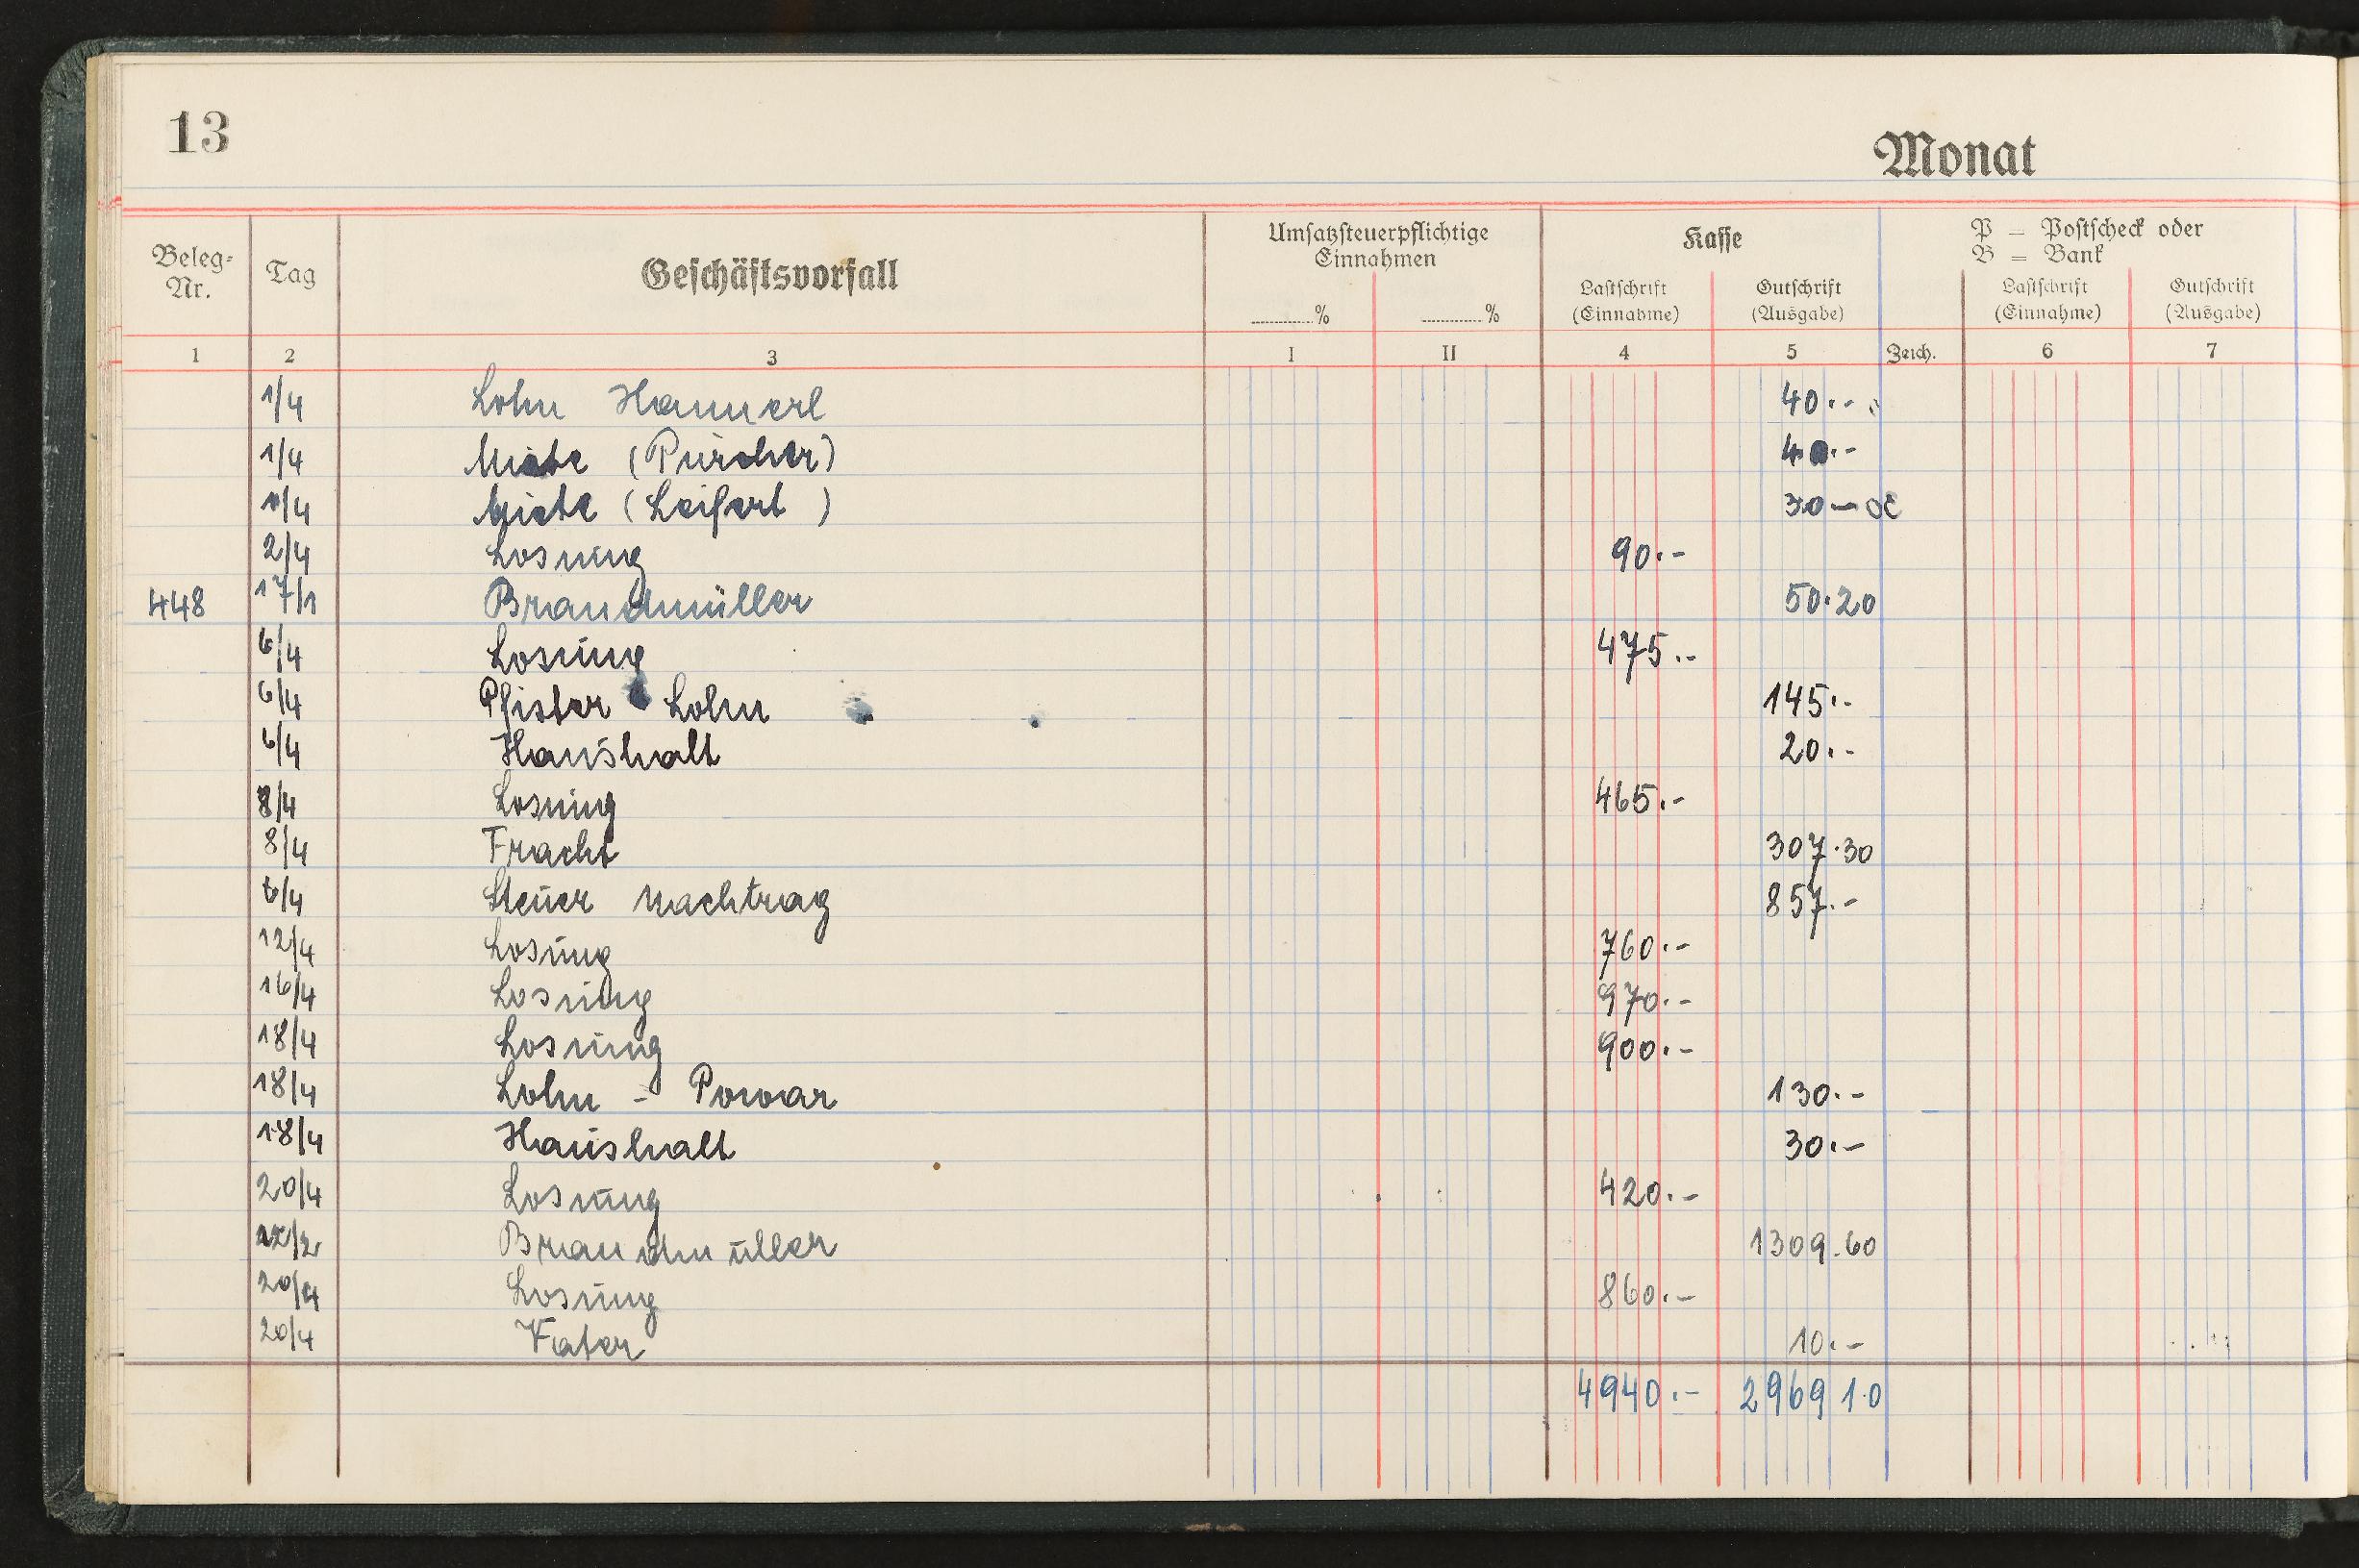 13
Monat
Beleg-Nr. Tag Geschäftsvorfall Umsatzsteuerpflichtige Einnahmen Kasse P = Postscheck oder B = Bank
......% ......% Lastschrift (Einnahme) Gutschrift (Ausgabe) Lastschrift (Einnahme) Gutschrift (Ausgabe)
1 2 3 I II 4 5 Zeich. 6 7
1/4 Lohn Hannerl 40.-
1/4 Miete (Pürcher) 40.-
1/4 Miete (Leifert) 30.-
2/4 Losung 90.-
448 17/1 Brandmüller 50.20
6/4 Losung 475.-
6/4 Pfister Lohn 145.-
6/4 Haushalt 20.-
8/4 Losung 465.-
8/4 Fracht 307.30
6/4 Steuer Nachtrag 857.-
12/4 Losung 760.-
16/4 Losung 970.-
18/4 Losung 900.-
18/4 Lohn - Powar 130.-
18/4 Haushalt 30.-
20/4 Losung 420.-
Brandmüller 1309.60
20/4 Losung 860.-
20/4 Vater 10.-
4940.- 2969 10